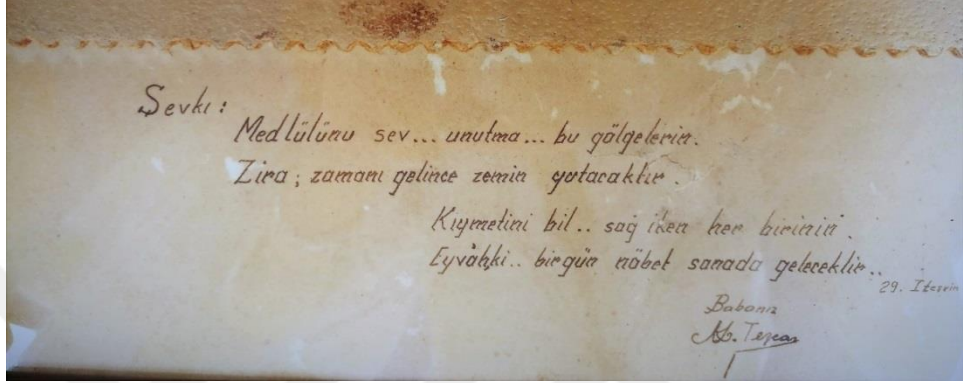 Sevkı:
Medlülünu sev... unutma... bu gölgelerin.
Zira; zamanı gelince zemin yutacaktır.
Kıymetini bil.. sağ iken her birinin.
Eyvâhki.. birgün nöbet sanada gelecektir..
29.
Babanız